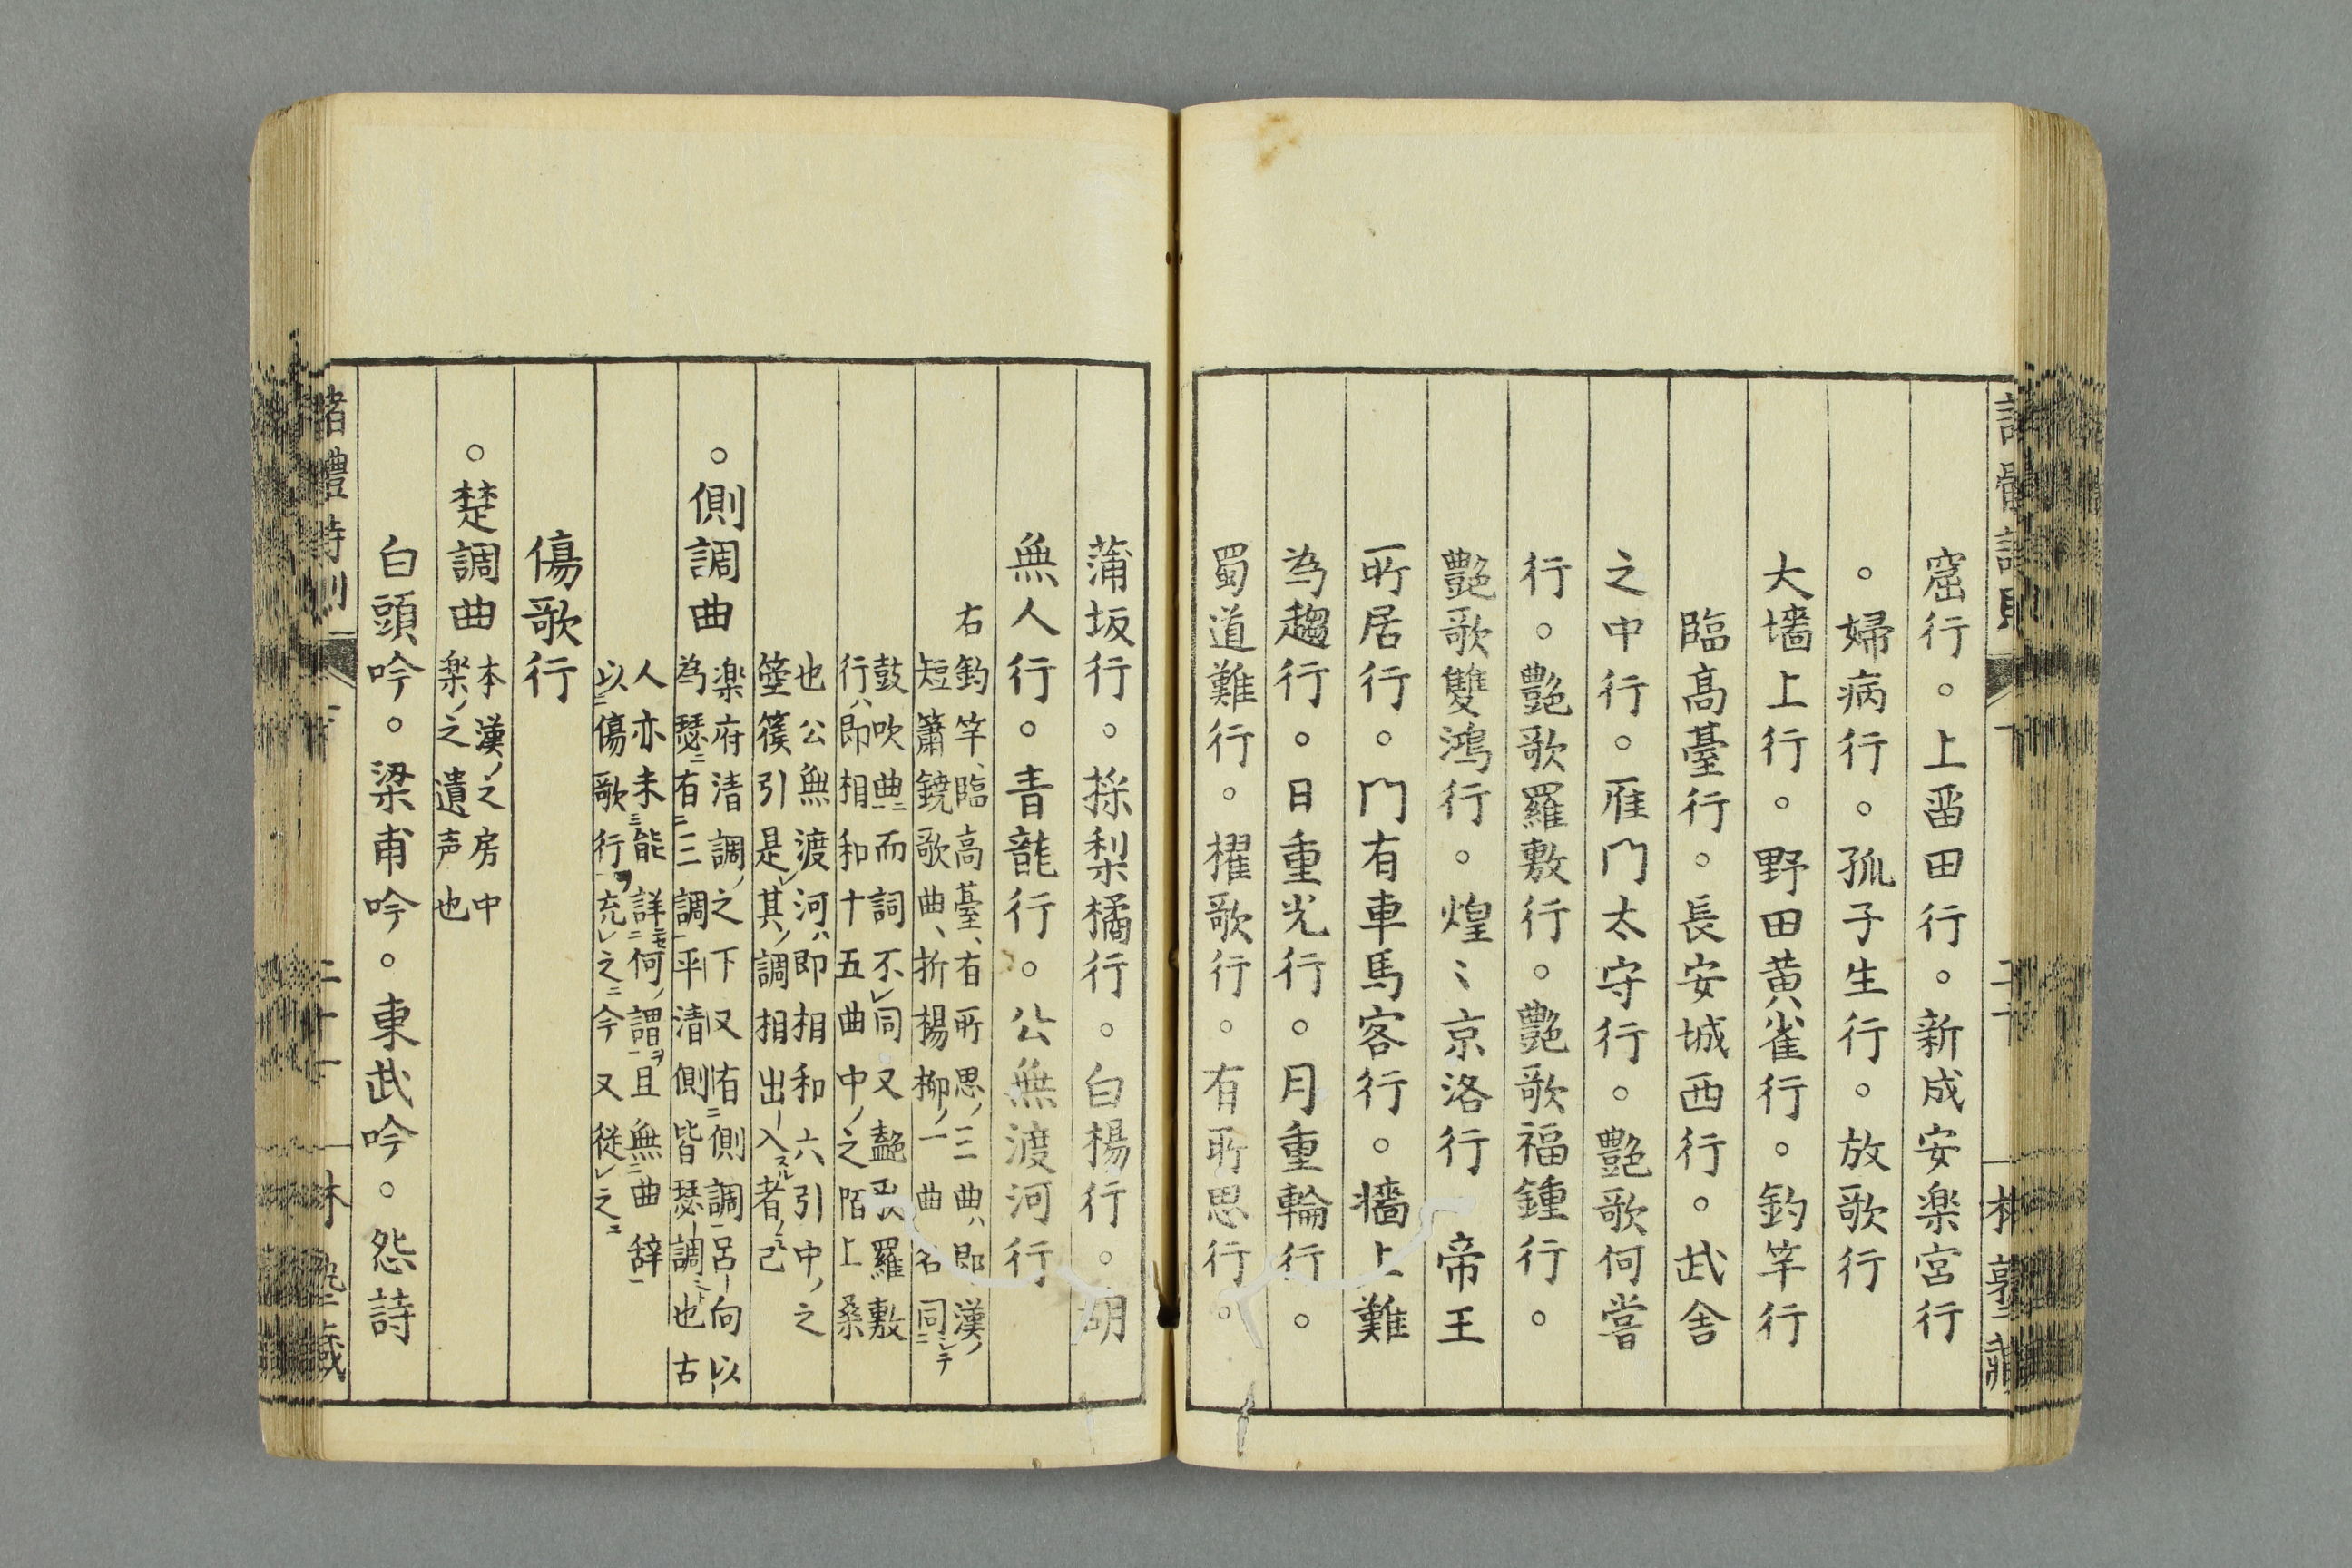 窟行。上畱田行。新成安楽宮行
。婦病行。孤子生行。放歌行
大墻上行。野田黄雀行。釣竿行
臨髙臺行。長安城西行。武舎
之中行。雁門太守行。艶歌何嘗
行。艶歌羅敷行。艶歌福鍾行。
艶歌雙鴻行。煌〻京洛行 帝王
所居行。門有車馬客行。墻上難
為趨行。日重光行。月重輪行。
蜀道難行。櫂歌行。有所思行。
蒲坂行。採梨橘行。白楊行。胡
無人行。青龍行。公無渡河行
右釣竿、臨高臺、有所思ノ三曲ハ即漢ノ
短簫鐃歌曲、折楊柳ノ一曲名同ニシテ
鼓吹曲ニ而詞不レ同又艶歌羅敷
行ハ即相和十五曲中ノ之陌上桑
也公無渡河ハ即相和六引中ノ之
箜篌引是レ其ノ調相出入スル者ノミ已
。側調曲
楽府清調ノ之下又有二側調一呂向以
為瑟ニ有二三調一平清側皆瑟調也古
人亦未三能詳二何ノ謂一ヲ且無二曲辞一
以二傷歌行一ヲ充レ之ニ今又従レ之ニ
傷歌行
。楚調曲
本漢ノ之房中
楽ノ之遺声也
白頭吟。梁甫吟。東武吟。怨詩
諸體詩則